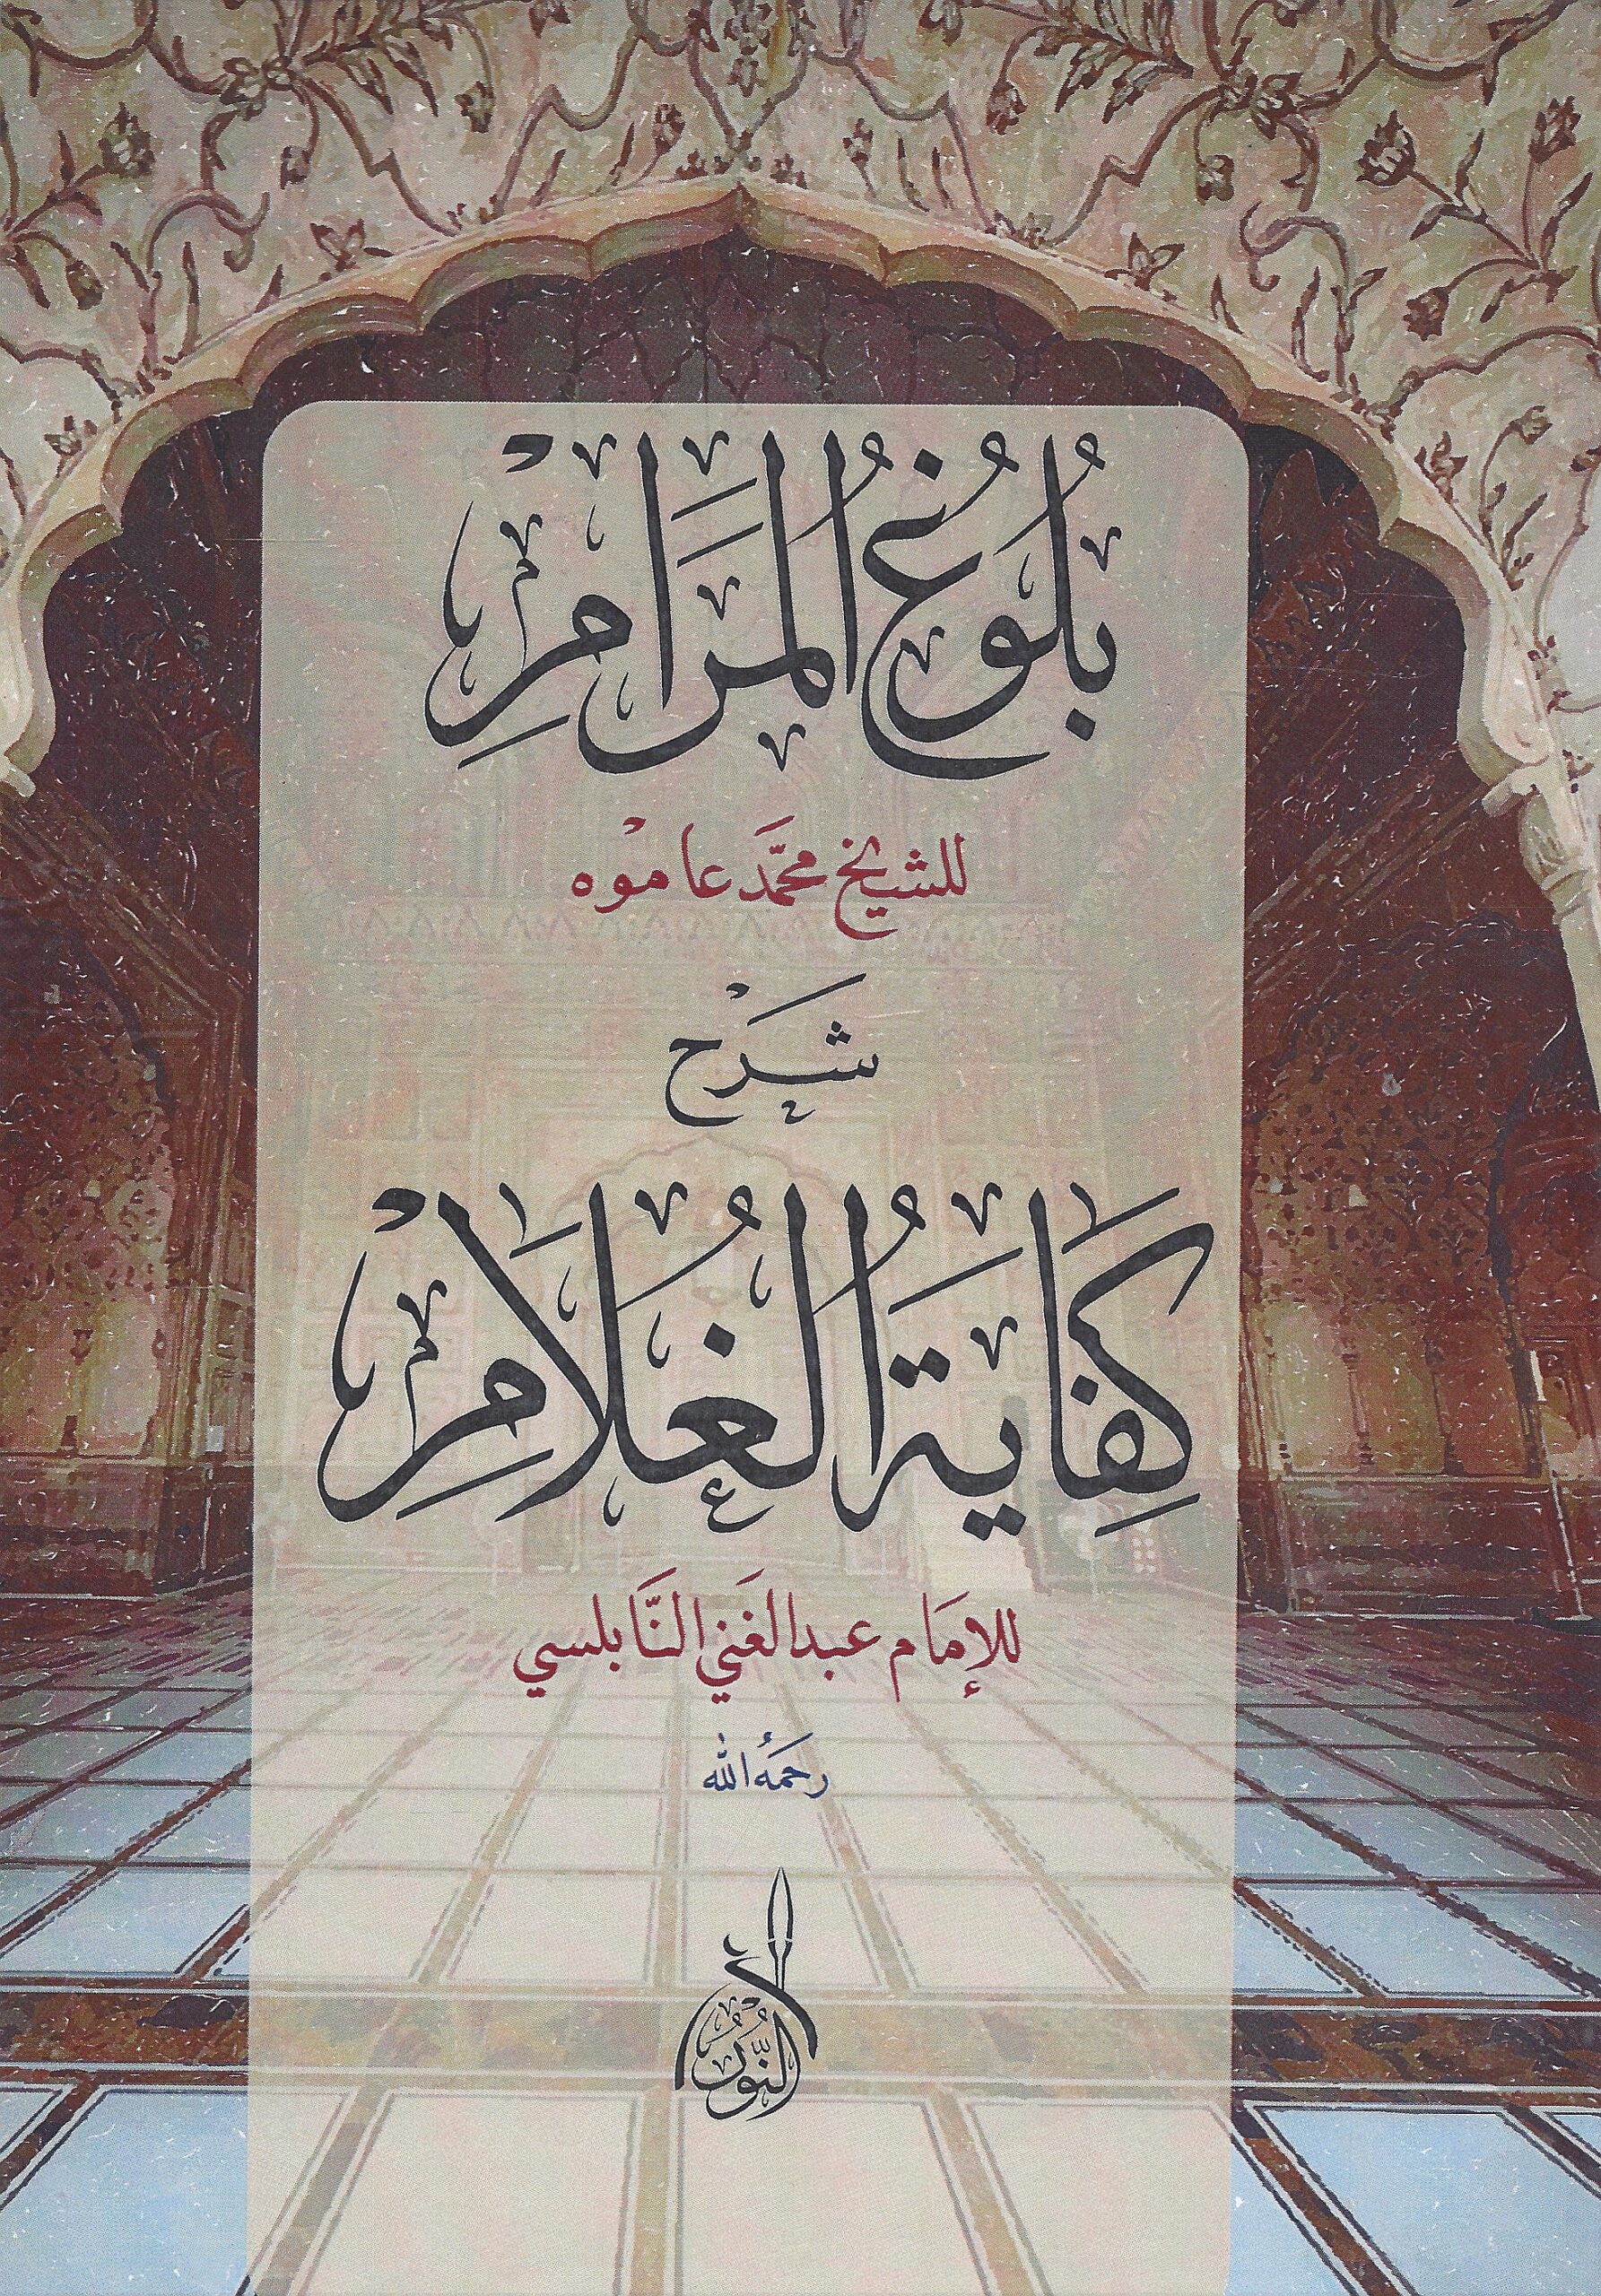 بُلُوغُ المَرَامِ
للشيخ محمَّد عاموْه
شَرْح
كِفَايَةُ الغُلَامِ
للإمَام عبد الغَني النَّابلسي
رحمَهُ الله
النُّوْر